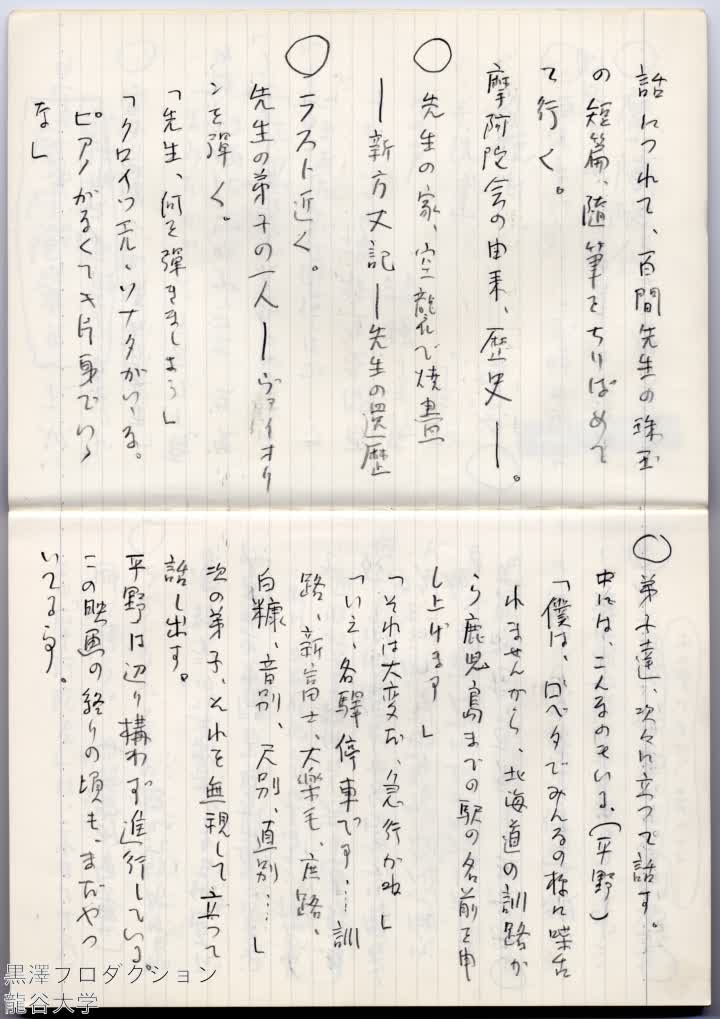 話につれて、百間先生の珠玉
の短篇、随筆をちりばめて
て行く。
摩阿陀会の由来、歴史ー。
○先生の家、空襲で焼盡
ー新方丈記ー先生の還歴
○ラスト近く。
先生の弟子の一人ーヴァイオリ
ンを弾く。
「先生、何を弾きましょう」
「クロイツエル・ソナタがいゝな。
ピアノがなくても片身でいゝ
な」
○弟子達、次々に立って話す。
中には、こんなのもいる、(平野)
「僕は、口ベタでみんなの様に喋れ
れませんから、北海道の訓路か
ら鹿児島までの駅の名前を申
し上げます」
「それは大変だ、急行かね」
「いえ、各驛停車です…訓
路、新富士、大楽毛、庶路、
白糠、音別、尺別、直別…」
次の弟子、それを無視して立って
話し出す。
平野は辺り構わず進行している。
この映画の終りの頃も、まだやっ
いてる事。
黒澤プロダクション
龍谷大学